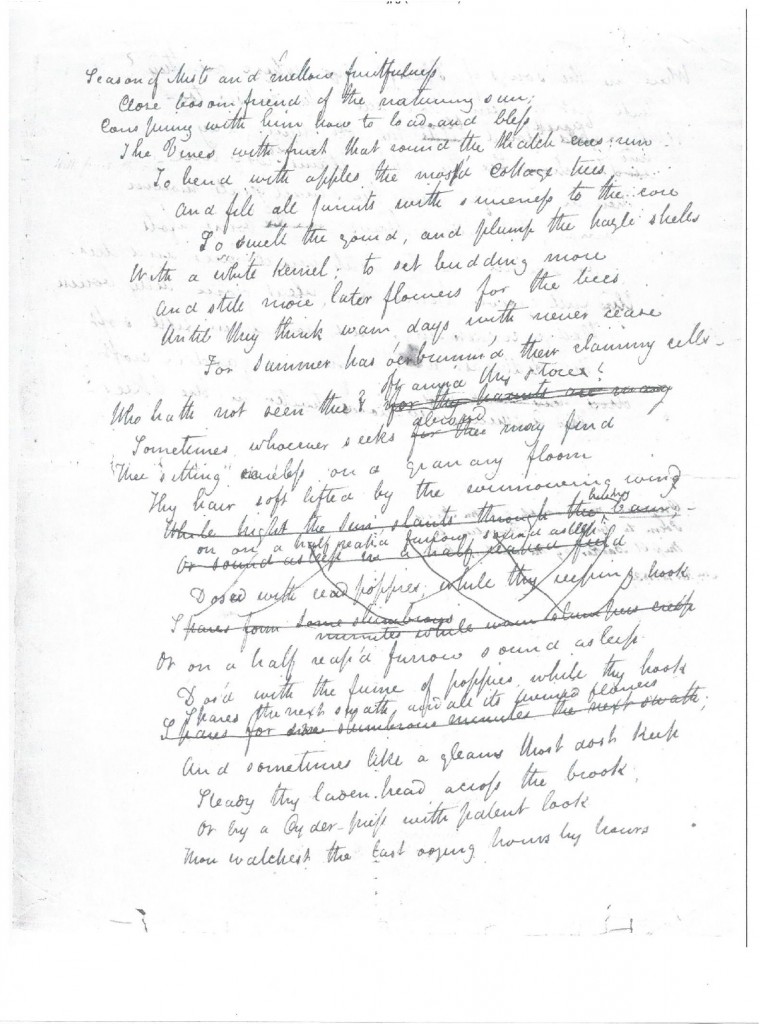 Season of Mists and mellow fruitfulness
Close bosom friend of the naturring sun;
Conspiring with him how to load and bless
The Vines with fruit that round the thatch eves run
To bend with apples the moss'd Cottage trees
And fill all fruits with sweeness to the core
To swell the gourd, and plump the hazle shells
With a white kernel; to set budding more
And still more later flowers for the bees
Until they think warm days with never cease
For Summer has o'erbrimm'd their clammy cells-
oft amid thy stores?
Who hath not seen thee? for thy haunts are many
abroad
Sometimes whoever seeks for thee may find
Thee sitting careless on a granary floorn
Thy hair soft lifted by the winnowing wind
While bright the Sun slants through the barn-
on on a half reap'd furrow sound asleep
Or sound asleep in a half reaped field
Dosed with read poppies while thy reeping hook
Spares form some slumbrous
minutes while warm slumpers creep
Or on a half reap'd furrow sound asleep
Dos'd with the fume of poppies, while thy hook
Spares the next swath and all its twined flowers
Spares for some slumbrous minutes the next swath;
And sometimes like a gleans thost dost keep
Steady thy laden head across the brook;
Or by a Cyder-press with patent look
Thou watchest the last oozing hours by hours